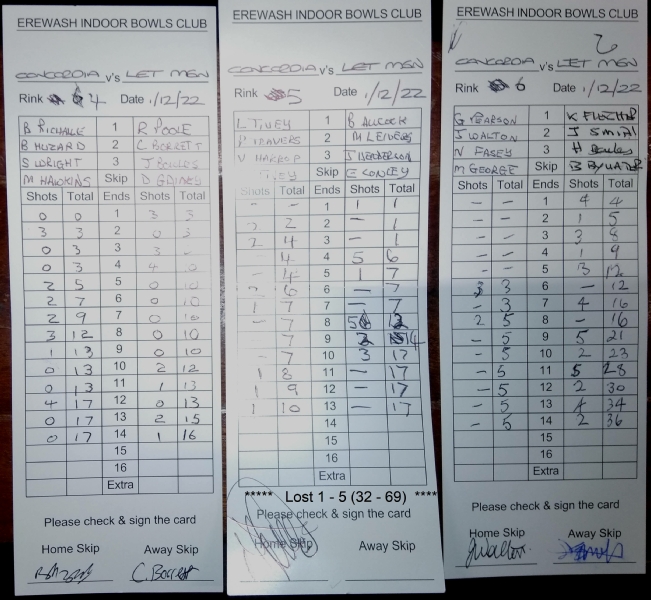 EREWASH INDOOR BOWLS CLUB
CONCORDIA v's LET MEN
Rink 4 Date 1/12/22
B RICHALLE 1 R POOLE
B HUZARD 2 C BORRETT
S WRIGHT 3 J BOWLES
M HAWKINS Skip D GAINES
Shots Total Ends Shots Total
0 0 1 3 3
3 3 2 0 3
0 3 3 3
0 3 4 4 10
2 5 5 0 10
2 7 6 0 10
2 9 7 0 10
3 12 8 0 10
1 13 9 0 10
0 13 10 2 12
0 13 11 1 13
4 17 12 0 13
0 17 13 2 15
0 17 14 1 16
15
16
Extra
Please check & sign the card
Home Skip Away Skip
C. Borrett
EREWASH INDOOR BOWLS CLUB
CONCORDIA v's LET MEN
Rink 5 Date 1/12/22
L TIVEY 1 B ALLCOCK
P TRAVERS 2 M LEIVERS
V HARROP 3
Skip E CONLEY
Shots Total Ends Shots Total
- - 1 1 1
2 2 2 - 1
2 4 3 - 1
4 4 5 6
- 4 5 1 7
2 6 6 - 7
1 7 7 - 7
- 7 8 5 12
- 7 9 2 14
- 7 10 3 17
1 8 11 - 17
1 9 12 - 17
1 10 13 - 17
14
15
16
Extra
***** Lost 1 - 5 (32 - 69) ****
Please check & sign the card
Home Skip Away Skip
EREWASH INDOOR BOWLS CLUB
CONCORDIA v's LET MEN
Rink 6 Date 1/12/22
G PEARSON 1 K FLETCHER
J WALTON 2 J SMITH
N FASEY 3 H Bowles
M GEORGE Skip B BYWATER
Shots Total Ends Shots Total
- - 1 4 4
- - 2 1 5
- - 3 3 8
- - 4 1 9
- - 5 3 12
3 3 6 - 12
- 3 7 4 16
2 5 8 - 16
- 5 9 5 21
- 5 10 2 23
- 5 11 5 28
- 5 12 2 30
- 5 13 4 34
- 5 14 2 36
15
16
Extra
Please check & sign the card
Home Skip Away Skip
J Walton